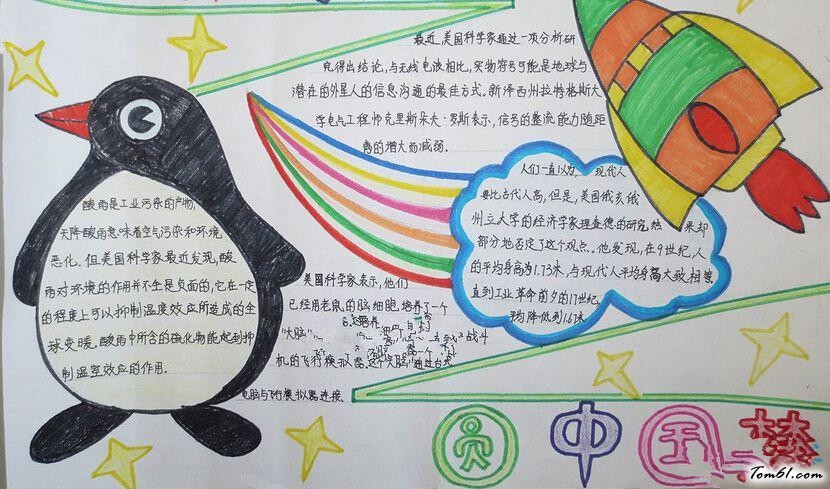 最近,美国科学家通过一项分析研
究得出结论,与无线电波相比,实物符号可能是地球与
潜在的外星人的信息沟通的最佳方式。新泽西州拉特格斯大
学电气工程师克里斯朵夫·罗斯表示,信号的整流能力随距
离的增大而减弱。
人们一直以为 现代人
要比古代人高,但是,美国俄亥俄
州立大学的经济学家理查德的研究结 果却
部分地否定了这个观点。他发现,在9世纪,人
的平均身高为1.73米,与现代人平均身高大致相等
直到工业革命前夕的17世纪
均降低到1.67米
酸雨是工业污染的产物,
天降酸雨意味着空气污染和环境
恶化。但美国科学家最近发现,酸
雨对环境的作用并不全是负面的,它在一定
的程度上可以抑制温度效应所造成的全
球变暖。酸雨中所含的硫化物能起到抑
制温室效应的作用。
美国科学家表示,他们
已经用老鼠的脑细胞培养了一个
"大脑" 战斗
机的飞行模拟器。这个"大脑"通过台式
电脑与飞行模拟器连接。
中国梦
Tom61.com